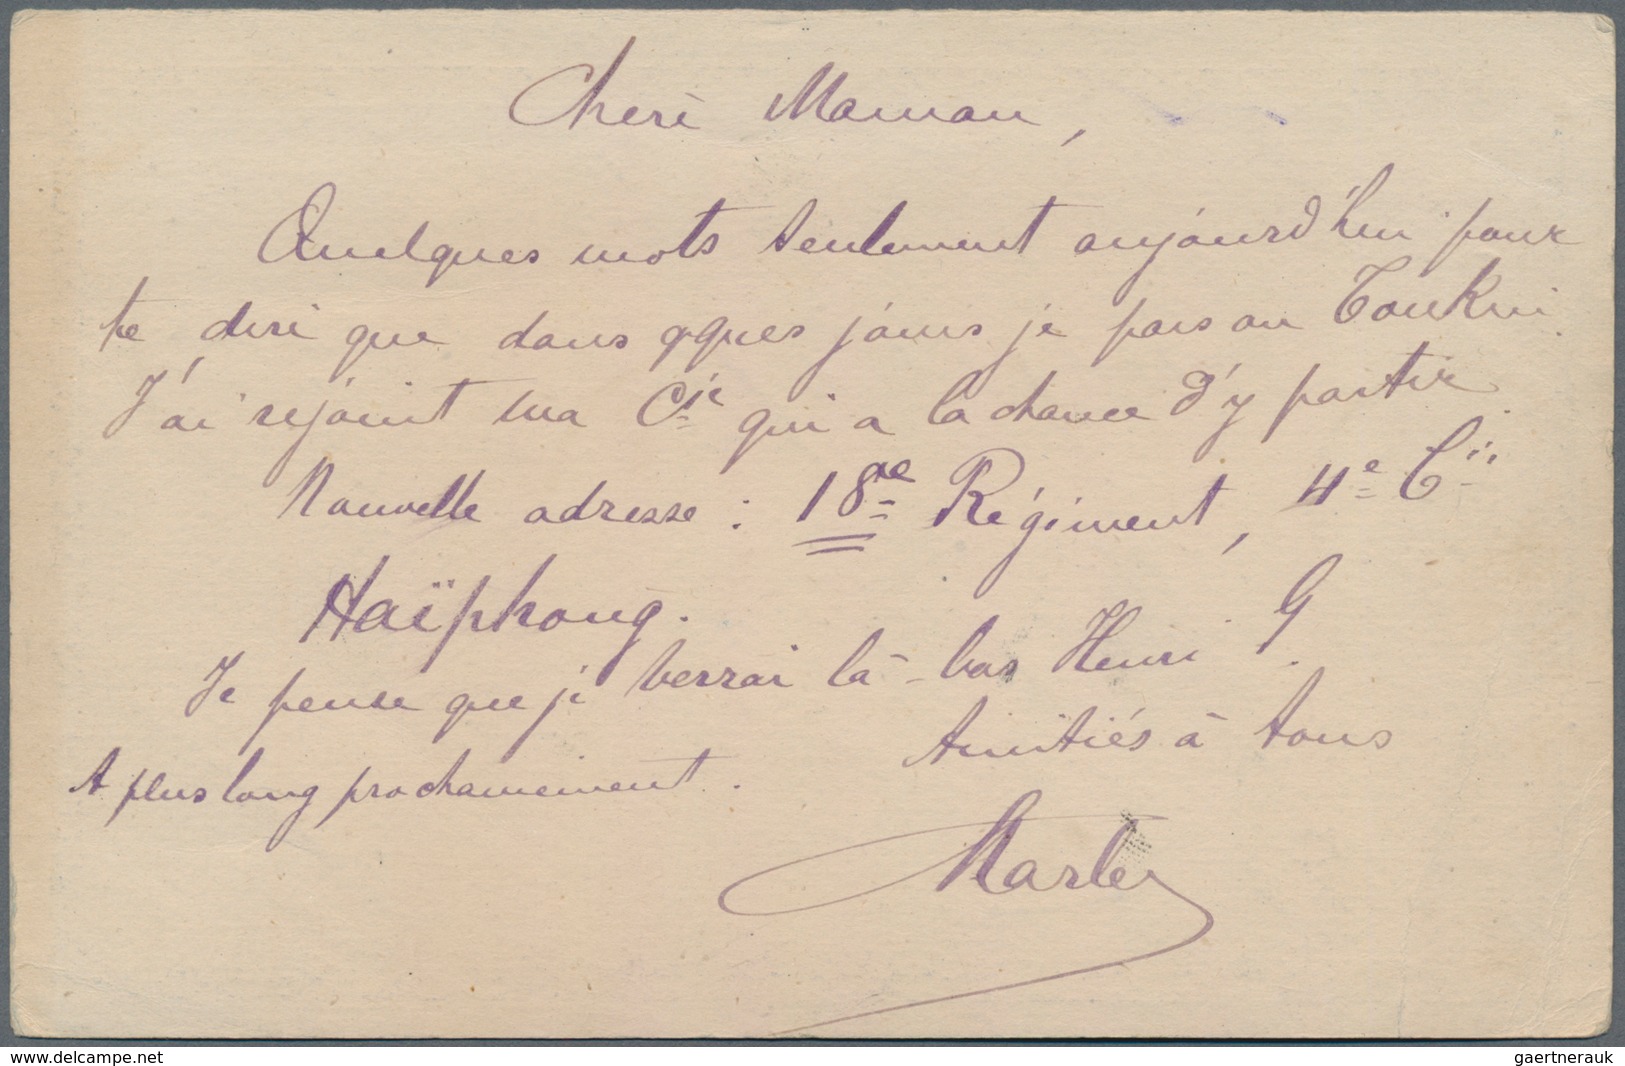 Chère Maman,
Quelques mots seulement aujourd'hui pour
te dire que dans qques jours je pars au Tonkin.
J'ai rejoint ma Cie qui a la chance d'y partir.
Nouvelle adresse : 18me Régiment, 4e Cie
Haïphong.
Je pense que je verrai là-bas Henri G.
Amitiés à tous
A plus long prochainement.
delcampe.net
gaertnerauk